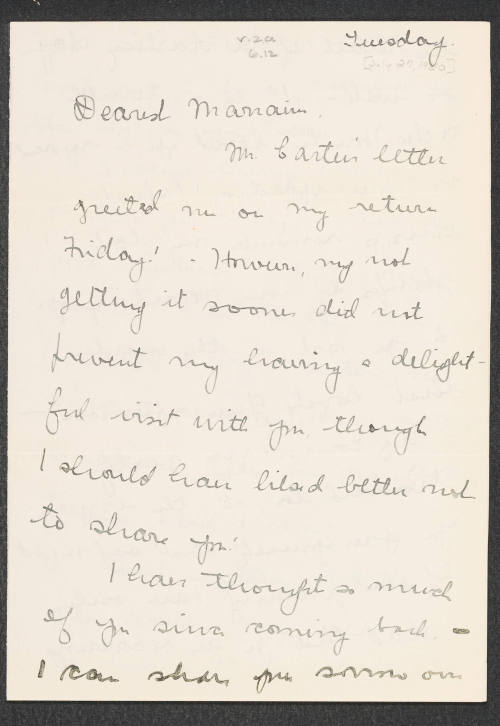 v.2a
6.12
Tuesday.
Dearest Marraine,
Mr. Carter's letter
greeted me on my return
Friday! - However, my not
getting it sooner did not
prevent my having a delight-
ful visit with you, though
I should have liked better not
to share you!
I have thought so much
of you since coming back. -
I can share your sorrow over